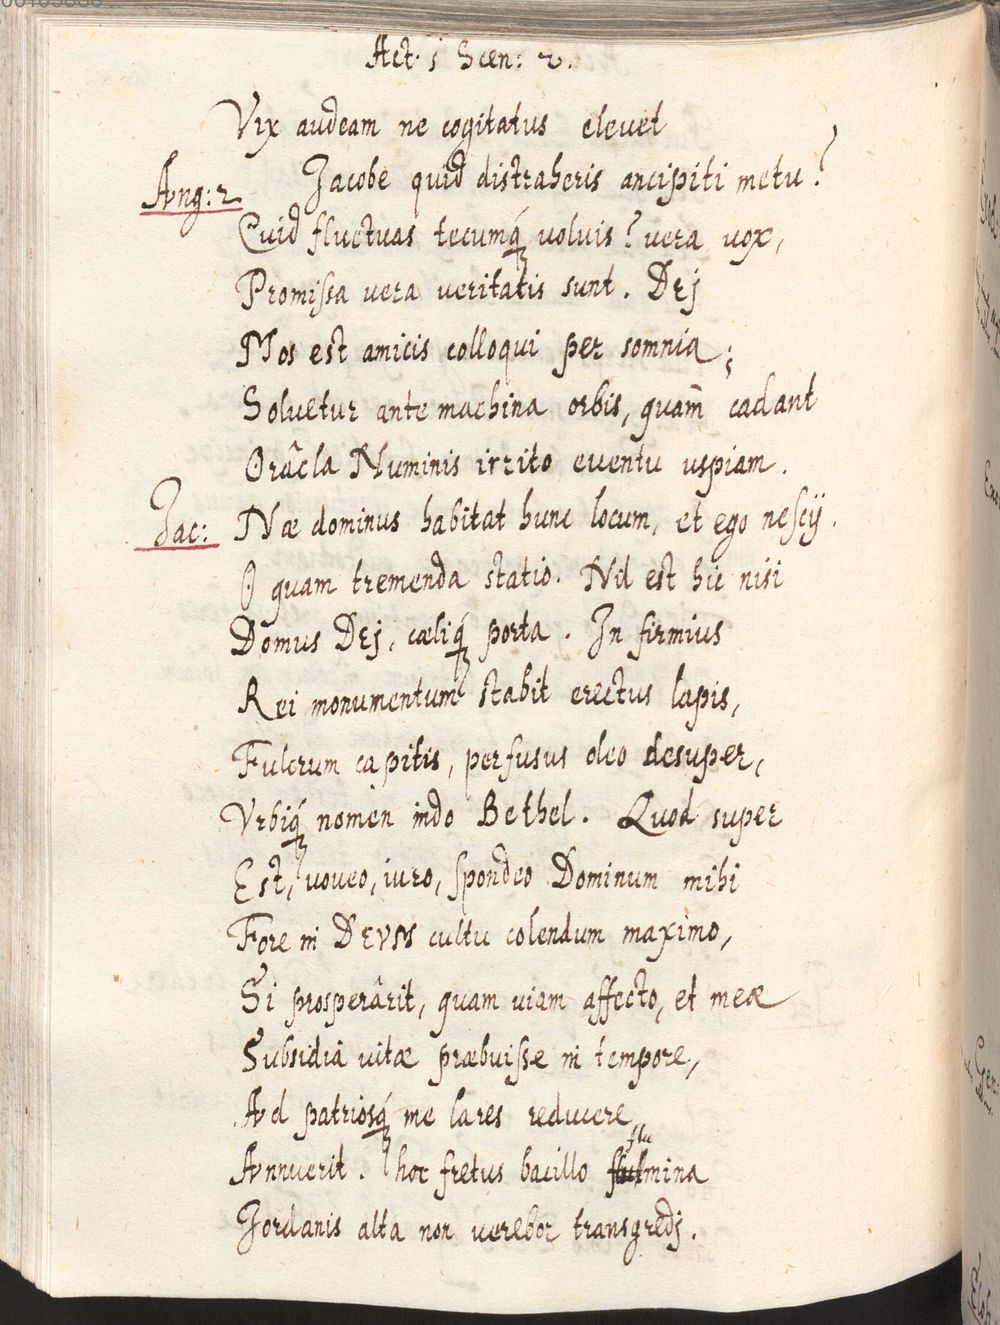 Act. j Scen: 2.
Vix audeam ne cogitatus elevet
Ang: 2 Jacobe quid distraheris ancipiti metu?
Quid fluctuas tecumq́ꝫ voluis? vera vox,
Promissa vera veritatis sunt. DEj
Mos est amicis colloqui per somnia;
Soluetur ante machina orbis, quam̃ cadant
Orâcla Numinis irrito euentu uspiam.
Jac: Næ dominus habitat hunc locum, et ego nescij.
O quam tremenda statio. Nil est hic nisi
Domus DEj, cæliq́ꝫ porta. In firmius
Rei monumentum stabit erectus lapis,
Fulcrum capitis, perfusus oleo desuper,
Vrbiq́ꝫ nomen indo Bethel. Quod super
Est, voveo, iuro, spondeo Dominum mihi
Fore in DEVM cultu colendum maximo,
Si prosperârit, quam viam affecto, et meæ
Subsidia vitæ præbuisse in tempore,
Ad patriosq́ꝫ me lares reducere
Annuerit. hoc fretus bacillo flumina
Jordanis alta non verebor transgredj.